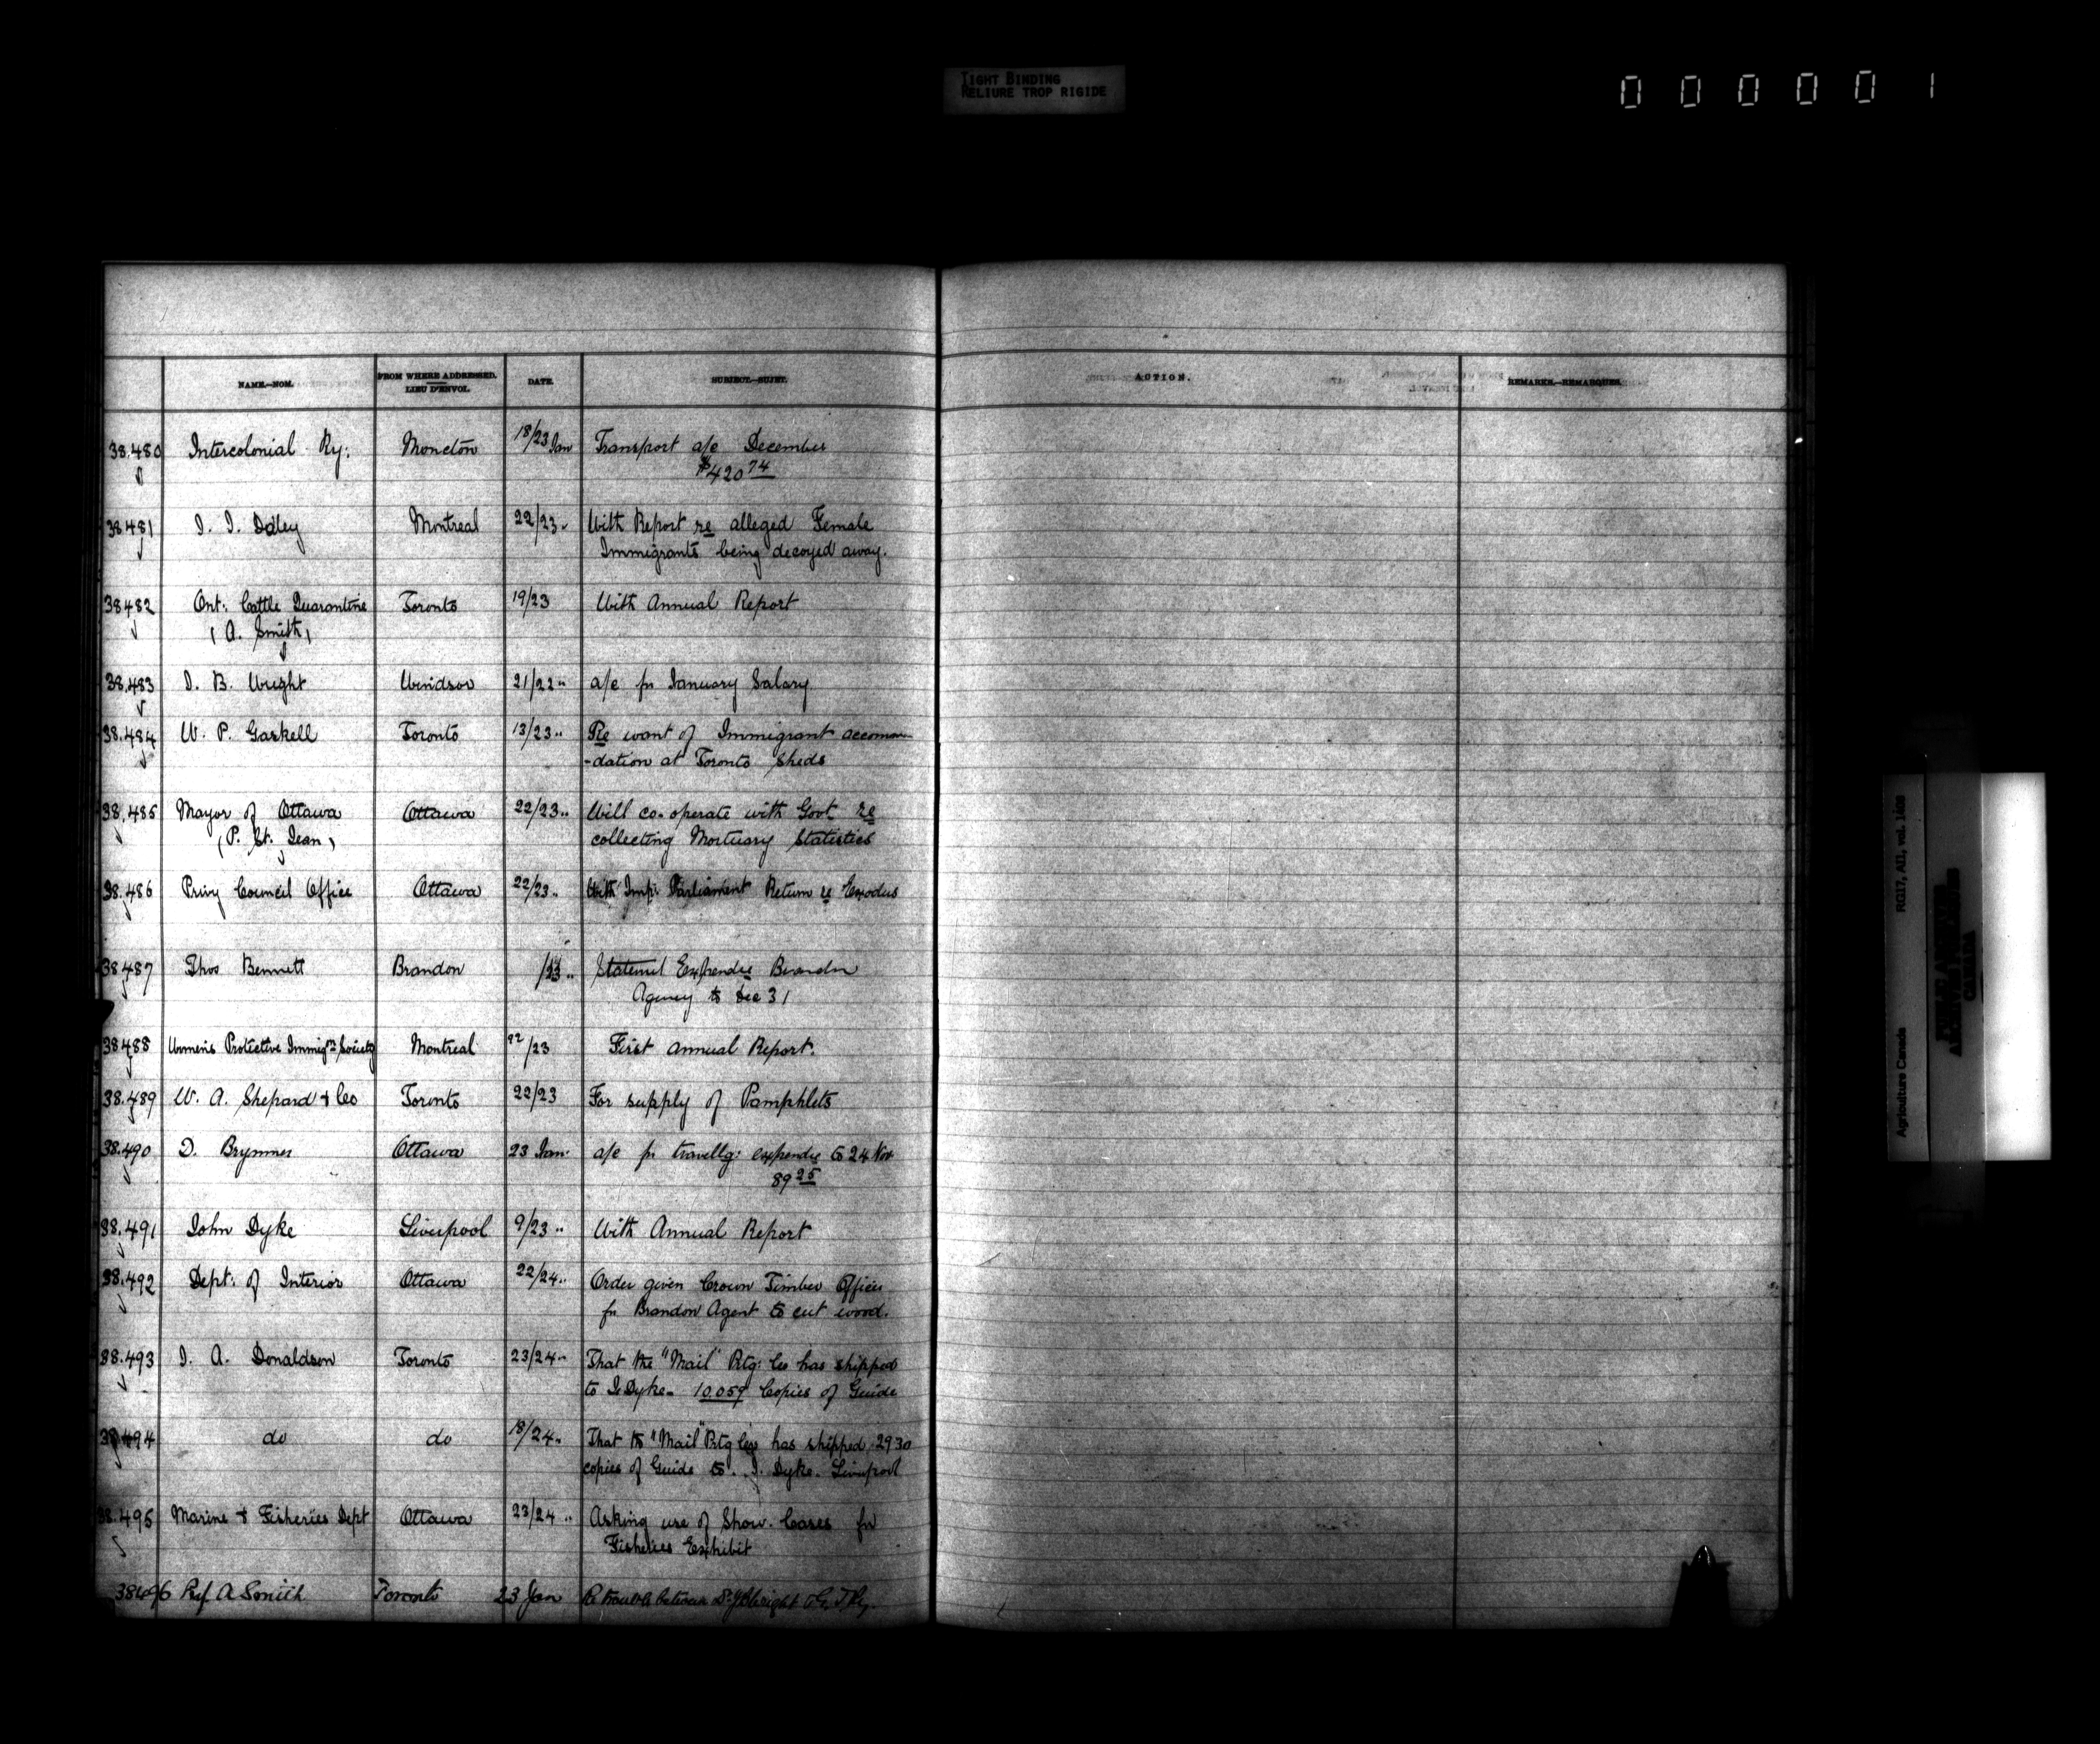 TIGHT BINDING
RELIURE TROP RIGIDE
000001
NAME.—NOM. FROM WHERE ADDRESSED. LIEU D'ENVOI. DATE. SUBJECT.—SUJET. ACTION. REMARKS.—REMARQUES.
38.480 Intercolonial Ry: Moncton 18/23 Jan Transport a/c December
$420 74
38481 J. J. Daley Montreal 22/23 " With Report re alleged Female
Immigrants being decoyed away.
38482 Ont: Cattle Quarantine Toronto 19/23 With Annual Report
(A. Smith)
38.483 J. B. Wright Windsor 21/22 " a/c fr January Salary
38.484 W. P. Gaskell Toronto 13/23 " Re want of Immigrant accomm
-dation at Toronto Sheds
38.485 Mayor of Ottawa Ottawa 22/23 " Will co-operate with Govt re
(P. St. Jean) collecting Mortuary Statistics
38.486 Privy Council Office Ottawa 22/23 " With Impr Parliament Return re Exodus
38487 Thos Bennett Brandon /23 " Statemt Expendre Brandon
Agency to Dec 31
38488 Women's Protective Immigtn Society Montreal 22/23 First Annual Report.
38.489 W. A. Shepard & Co Toronto 22/23 For supply of Pamphlets
38.490 D. Brymner Ottawa 23 Jan: a/c fr travellg: expendre to 24 Nov
89 25
38.491 John Dyke Liverpool 9/23 " With Annual Report
38.492 Dept: of Interior Ottawa 22/24 " Order given Crown Timber Officer
fr Brandon Agent to cut wood.
38.493 J. A. Donaldson Toronto 23/24 " That the "Mail" Ptg: Co has shipped
to J. Dyke - 10.059 Copies of Guide
38494 do do 18/24 " That the "Mail" Ptg Co has shipped 2930
copies of Guide to J. Dyke. Liverpool
38.495 Marine & Fisheries Dept Ottawa 23/24 " Asking use of Show-Cases for
Fisheries Exhibit
38496 Prf. A Smith Toronto 23 Jan Re between Wright & G. T. Ry.
Agriculture Canada RG17, AII, vol. 1408
PUBLIC ARCHIVES
ARCHIVES PUBLIQUES
CANADA